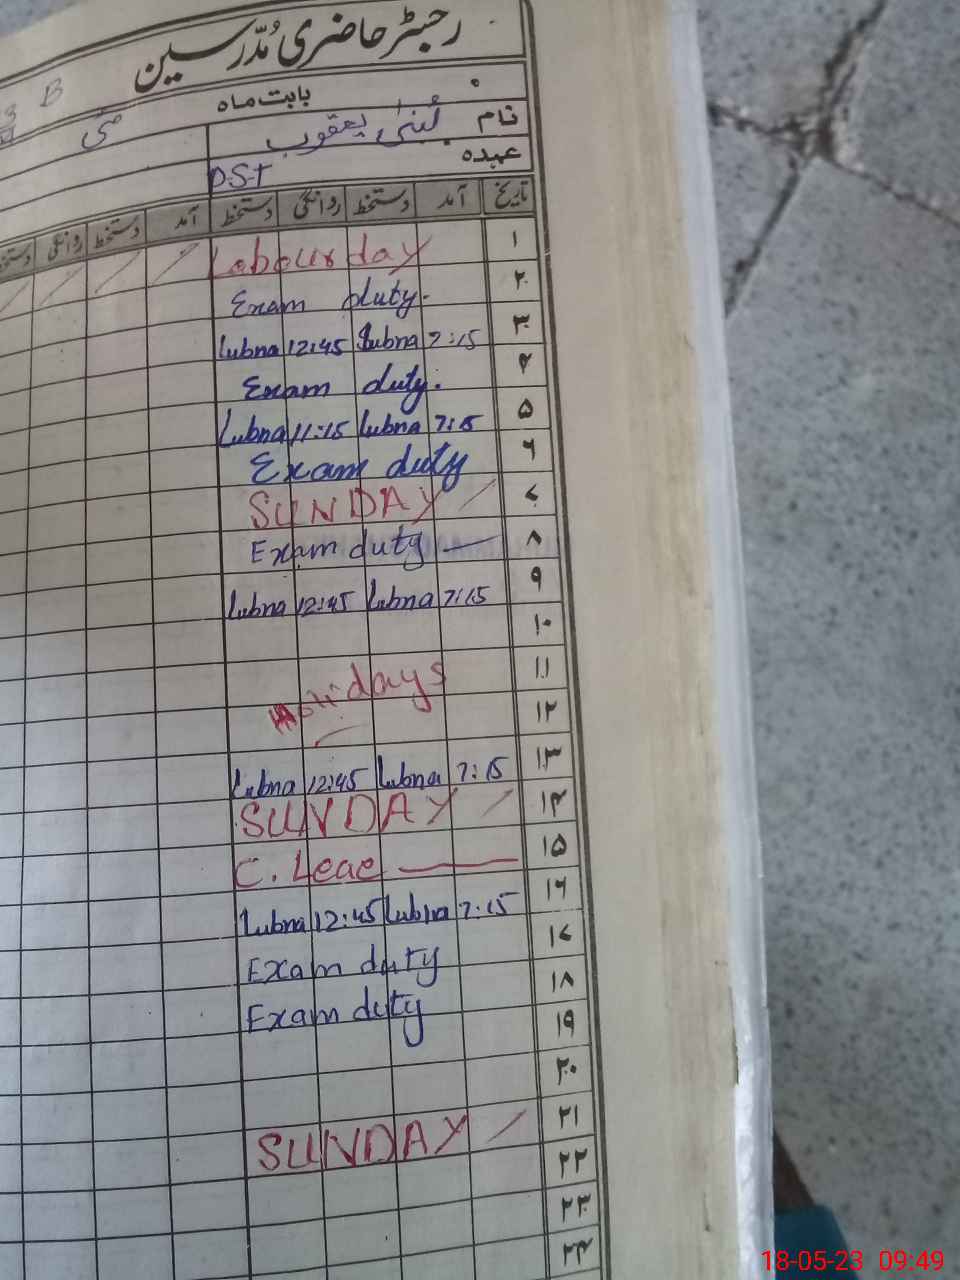 رجسٹر حاضری مُدّرسین
B
بابت ماہ مئی
نام لُبنیٰ یعقوب
عہدہ D.S.T
تاریخ آمد دستخط روانگی دستخط آمد دستخط روانگی دستخط
۱ Labour day
۲ Exam duty.
۳ Lubna 12:45 Lubna 7:15
۴ Exam duty.
۵ Lubna 11:15 Lubna 7:15
۶ Exam duty
۷ SUNDAY
۸ Exam duty
۹ Lubna 12:45 Lubna 7:15
۱۰
۱۱ Holidays
۱۲
۱۳ Lubna 12:45 Lubna 7:15
۱۴ SUNDAY
۱۵ C. Leae
۱۶ Lubna 12:45 Lubna 7:15
۱۷ Exam duty
۱۸ Exam duty
۱۹
۲۰
۲۱ SUNDAY
۲۲
۲۳
۲۴
18-05-23 09:49